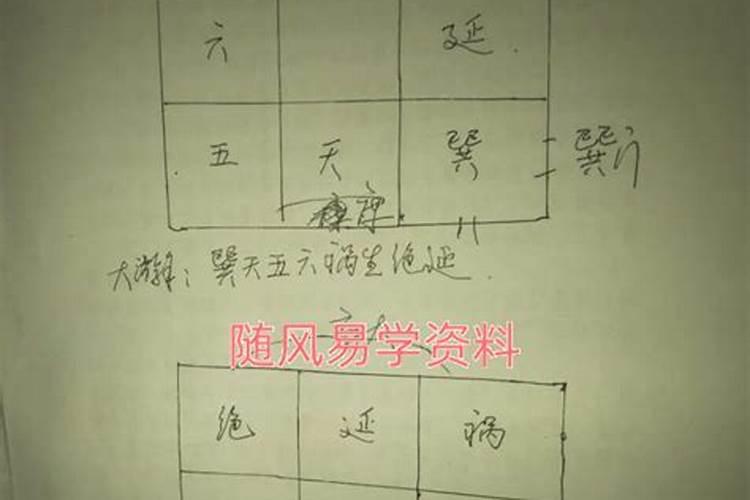 六 延
五 天 巽 巽门
大游年：巽天五六祸生绝延
随风易学资料
绝 延 祸